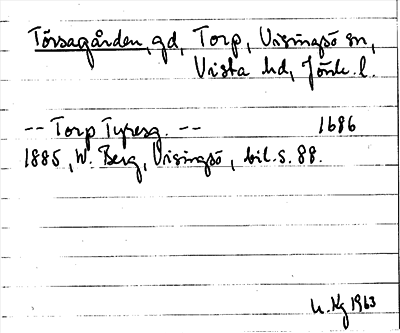 Törsagården, gd, Torp, Visingsö sn,
Vista hd, Jönk. l.
-- Torp Tyresg. -- 1686
1885, W. Berg, Visingsö, bil. s. 88.
Kg 1963